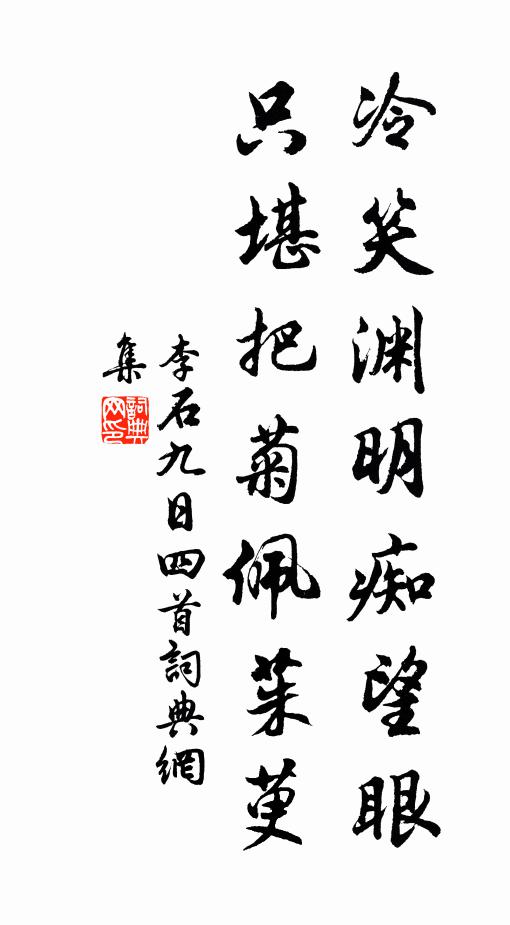 冷笑渊明痴望眼
只堪把菊佩茱萸
李石九日四首詞典網
集
詞典网印